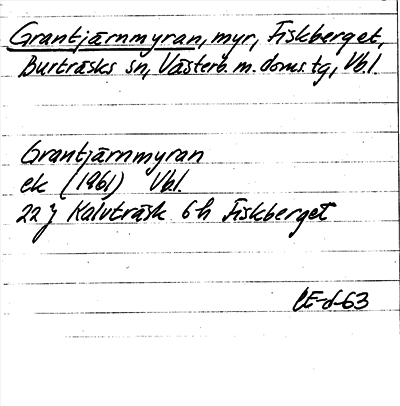 Grantjärnmyran, myr, Fiskberget,
Burträsks sn, Västerb. m. doms. tg, Vb.l.
Grantjärnmyran
ek (1961) Vb.l.
22 J Kalvträsk 6h Fiskberget
CE-d-63